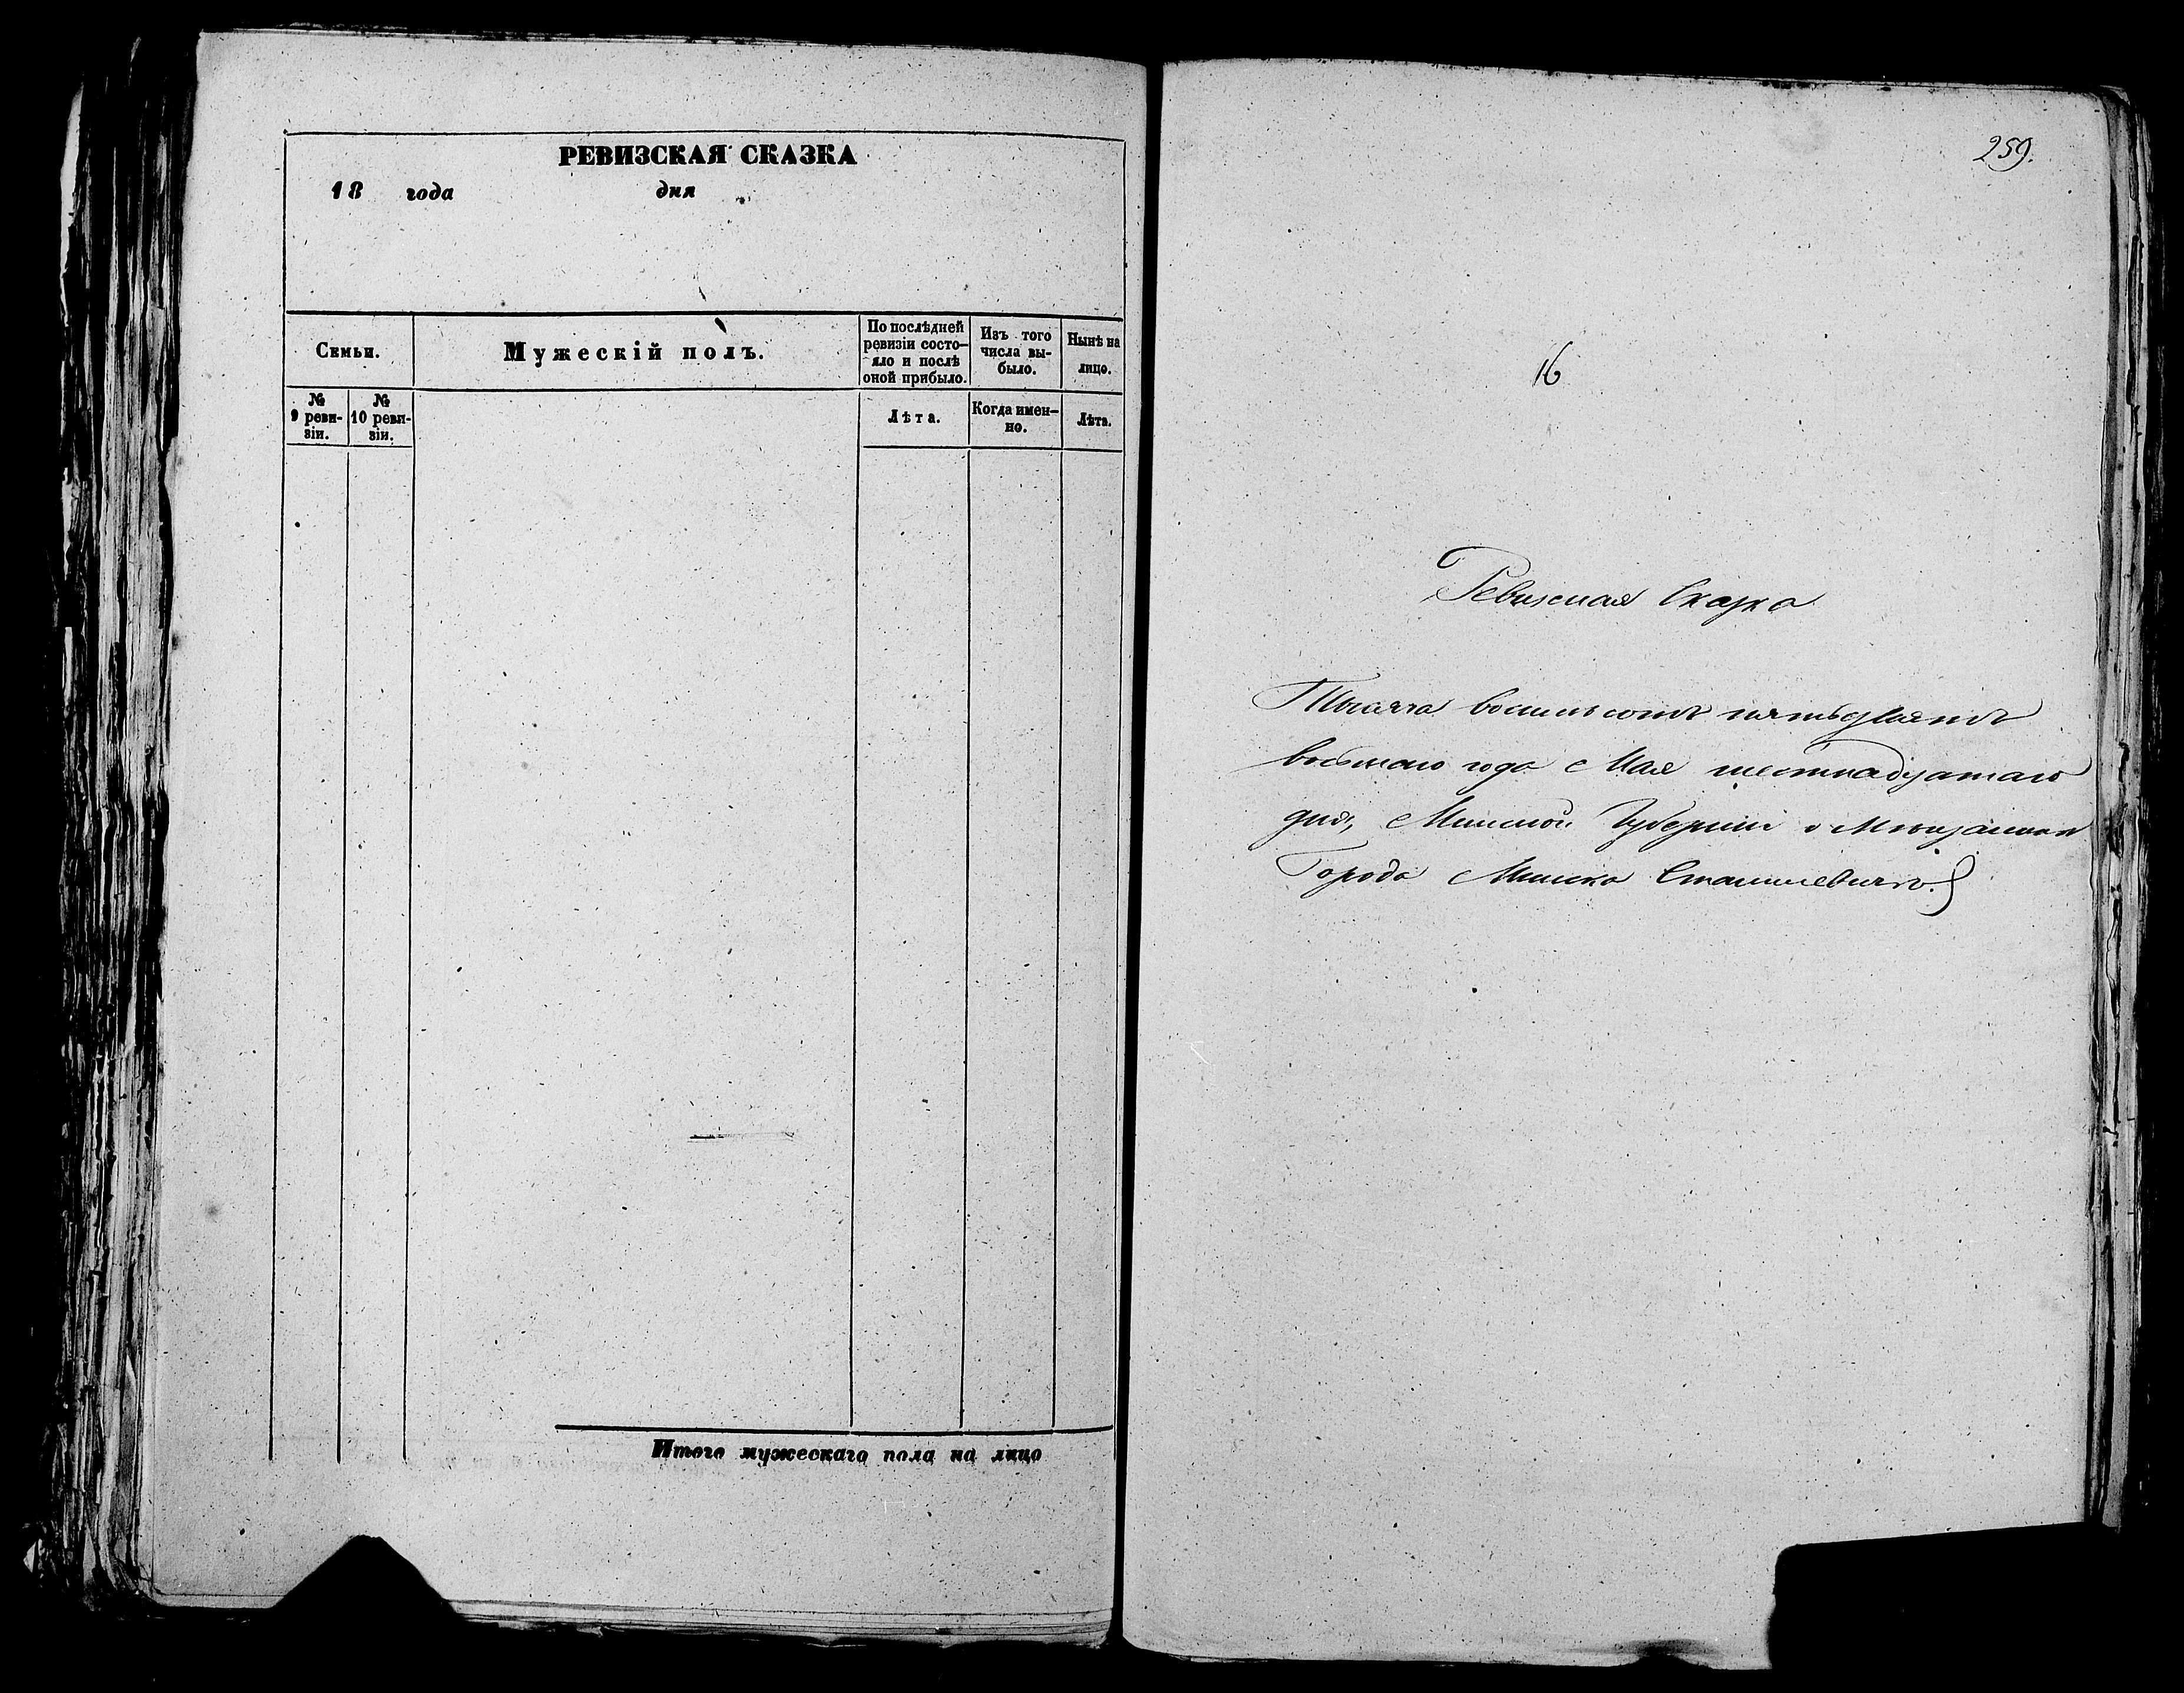 РЕВИЗСКАЯ СКАЗКА
18 года дня
Семьи.
Мужескій полъ.
По послѣдней
ревизіи состо-
яло и послѣ
оной прибыло.
Изъ того
числа вы-
было.
Нынѣ на
лицо.
№
9 реви-
зіи.
№
10 реви-
зіи.
Лѣта.
Когда имен-
но.
Лѣта.
Итого мужескаго пола на лицо
259.
16
Ревизская Сказка
Тысяча восемьсотъ пятьдесятъ
восьмаго года Мая шестнадцатаго
дня, Минской Губерніи о Мѣщанинѣ
Города Минска